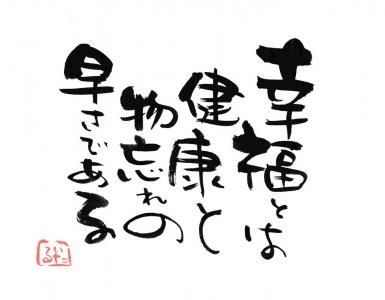 幸福とは
健康と
物忘れの
早さである